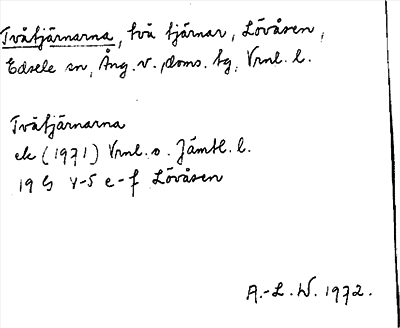 Tvåtjärnarna, två tjärnar, Lövåsen,
Edsele sn, Ång. v. doms. tg, Vrnl. l.
Tvåtjärnarna
ek (1971) Vrnl. o. Jämtl. l.
19 G V-5 e-f Lövåsen
A.-L. W. 1972.